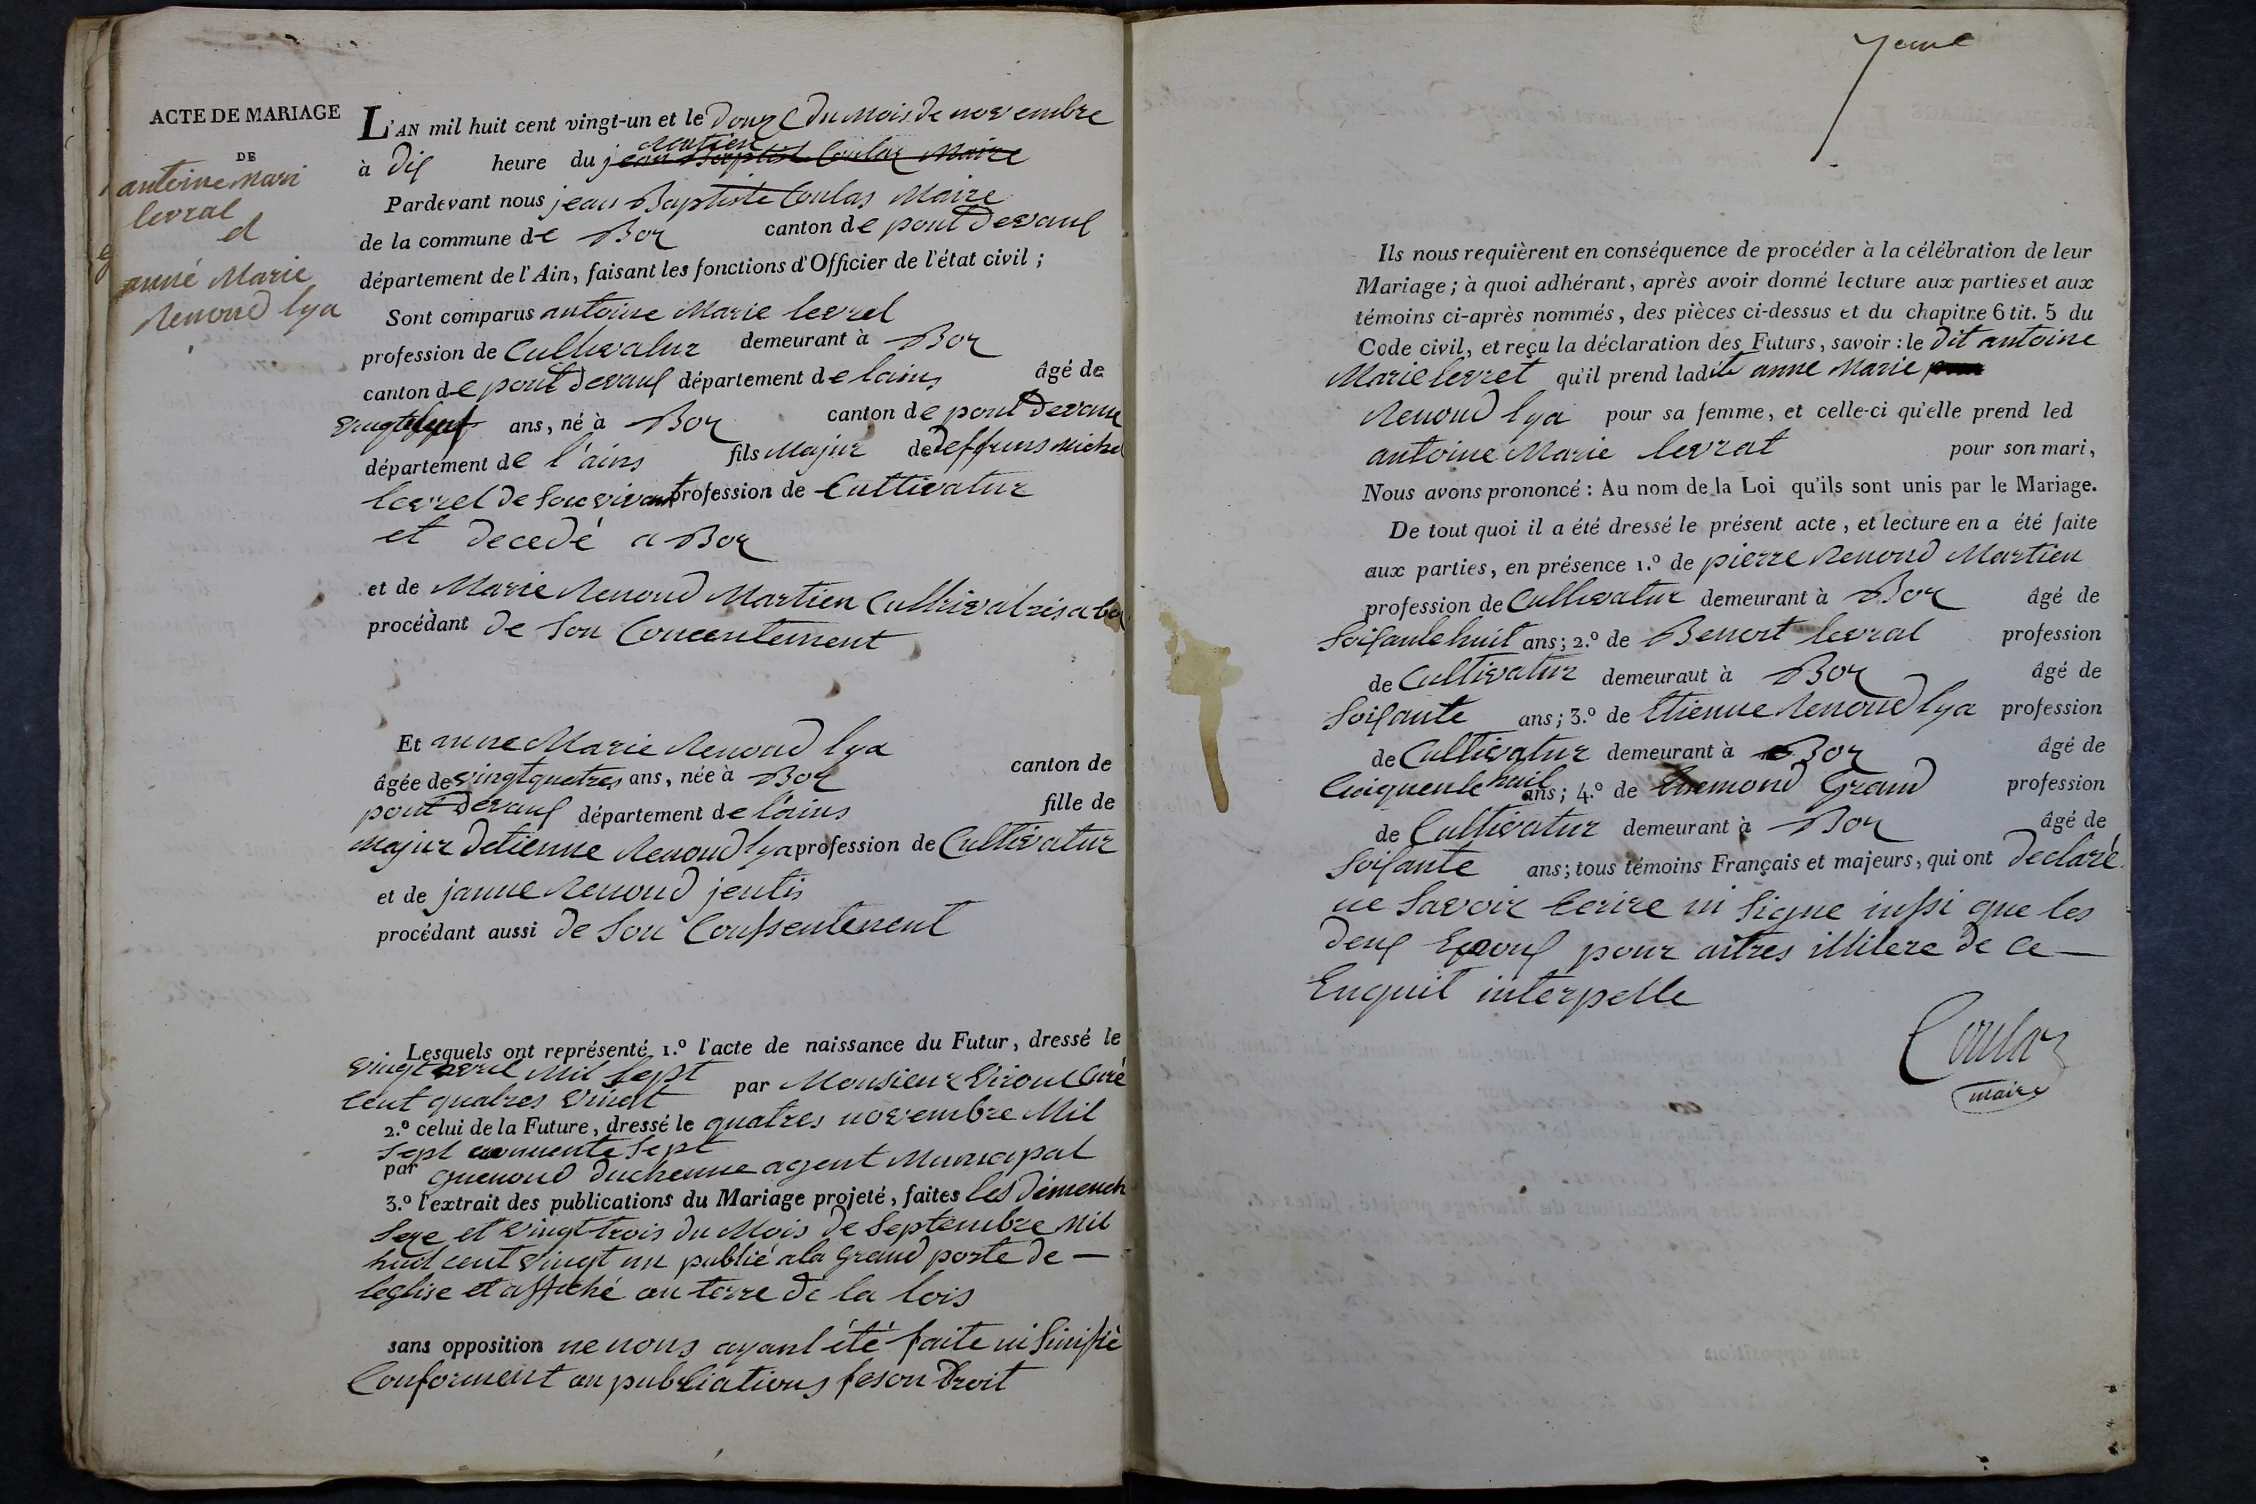 ACTE DE MARIAGE
DE
antoine mari
levral
et
anné Marie
Renoud lya
L'AN mil huit cent vingt-un et le douze du Mois de novembre
à dix heure du matien jean Baptist Coulas Maire
Pardevant nous jean Baptiste Coulas Maire
de la commune de Boz canton de pont Devaux
département de l'Ain, faisant les fonctions d'Officier de l'état civil ;
Sont comparus antoine Marie levrel
profession de Cultivatur demeurant à Boz
canton de pont devaux département de lains âgé de
vingt sept ans, né à Boz canton de pont Devaux
département de l'ains fils Majur de deffuns Michel
levrel de son vivant profession de Cultivatur
et decedé a Boz
et de Marie Renoud Martien Cultrivatris a boz
procédant de son Concentement
Et anne Marie Renoud lya
âgée de vingtquatres ans, née à Boz canton de
pont Devaux département de lains fille de
majur detienne Renoud lya profession de Cultivatur
et de janne Renoud jentis
procédant aussi de son Conssentement
Lesquels ont représenté 1.º l'acte de naissance du Futur, dressé le
vingt avril Mil sept
cent quatres vingt par Monsieur Curé
2.º celui de la Future, dressé le quatres novembre Mil
sept sept
par guenoud duchenne agent Municipal
3.º l'extrait des publications du Mariage projeté, faites les dimench
seze et vingt trois du Mois de septembre Mil
huit cent vingt un publié a la grand porte de
leglise et affiché au terre de la lois
sans opposition ne nous ayant été faite ni sinifiè
Conforment au publiations feson Droit
7eme
Ils nous requièrent en conséquence de procéder à la célébration de leur
Mariage ; à quoi adhérant, après avoir donné lecture aux parties et aux
témoins ci-après nommés, des pièces ci-dessus et du chapitre 6 tit. 5 du
Code civil, et reçu la déclaration des Futurs, savoir : le dit antoine
Marie levret qu'il prend ladite anne Marie
Renoud lya pour sa femme, et celle-ci qu'elle prend led
antoine Marie levrat pour son mari,
Nous avons prononcé : Au nom de la Loi qu'ils sont unis par le Mariage.
De tout quoi il a été dressé le présent acte, et lecture en a été faite
aux parties, en présence 1.º de pierre Renoud Martien
profession de Cultivatur demeurant à Boz âgé de
soixante huit ans ; 2.º de Benoit levral profession
de Cultivatur demeuraut à Boz âgé de
soixante ans ; 3.º de Etienne Renoud lya profession
de Cultivatur demeurant à Boz âgé de
Cuiquente huit ans ; 4.º de Grand profession
de Cultivatur demeurant à Boz âgé de
soixante ans ; tous témoins Français et majeurs, qui ont declaré
ne savoir Ecrire ni signe inssi que les
deux Epoux pour aitres illitere de ce
Enquit interpelle
Coulaz
maire